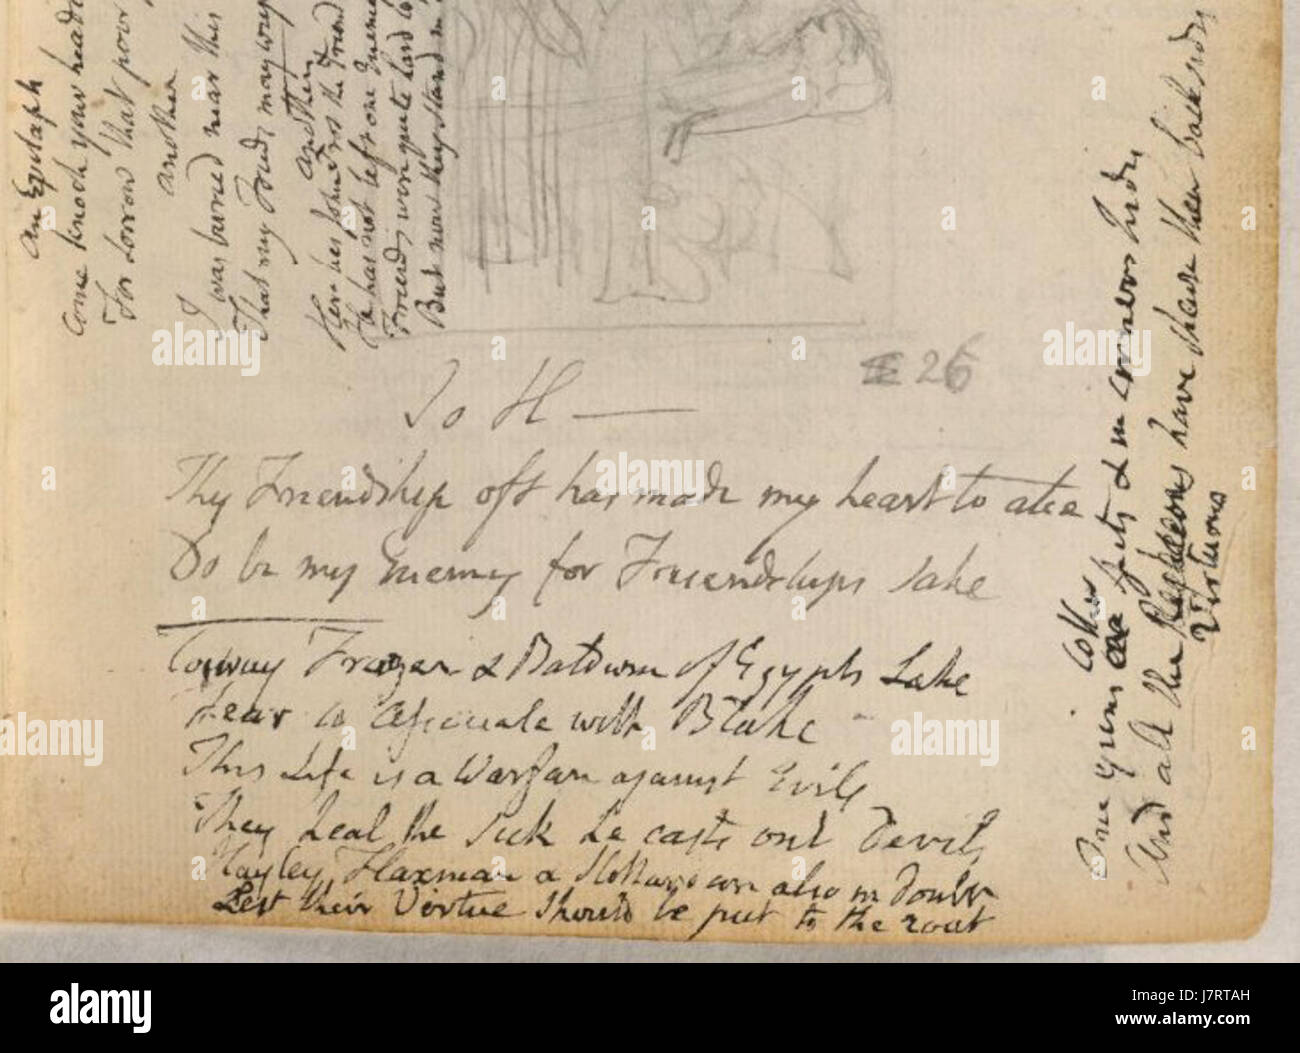 an Epitaph
Come knock your heads
For sorrow that poor
another
I was buried near this
That my Friends may weep
another
Here lies John Trot the Friend
He has not left one Enemy
Friends were quite hard to
But now they stand in
26
To H—
Thy Friendship oft has made my heart to ake
Do be my Enemy for Friendships sake
Cosway Frazer & Baldwin of Egypts Lake
Fear to associate with Blake
This Life is a Warfare against Evils
They heal the sick he casts out Devils
Hayley Flaxman & Stothard are also in doubt
Lest their Virtue should be put to the rout
One grins spits & in corners hides
cother
And all the Righteous have shewn their backsides
Virtuous
alamy
Image ID: J7RTAH
www.alamy.com